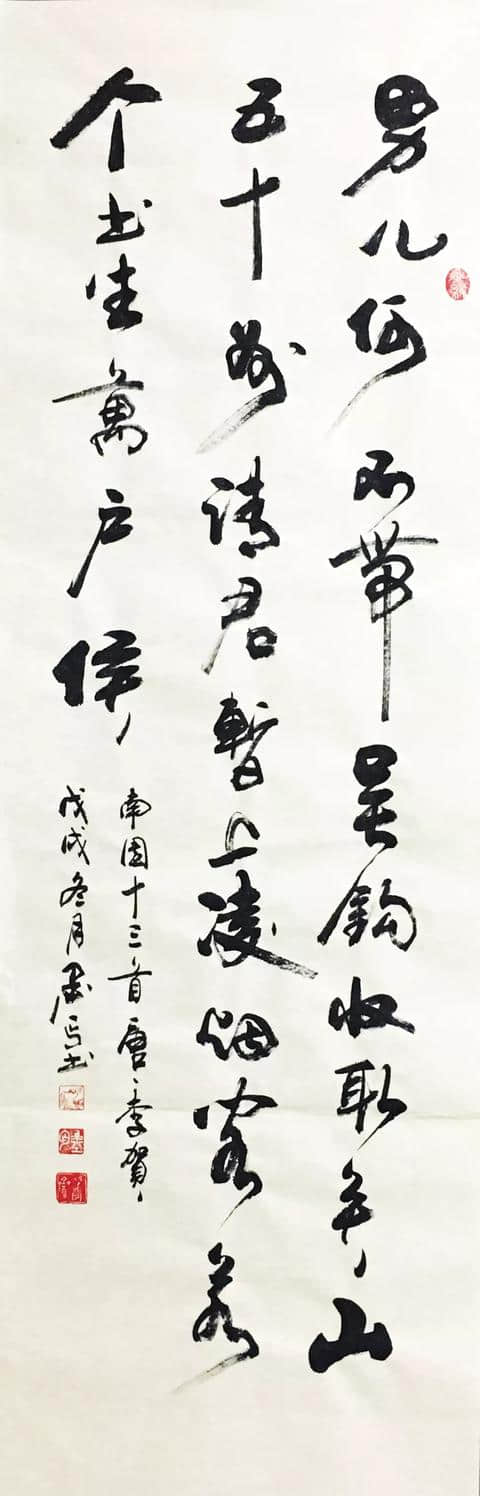 男儿何不帶吴鈎收取关山
五十州请君暫上凌烟阁若
个书生萬户侯
南园十三首唐李賀
戊戌冬月书